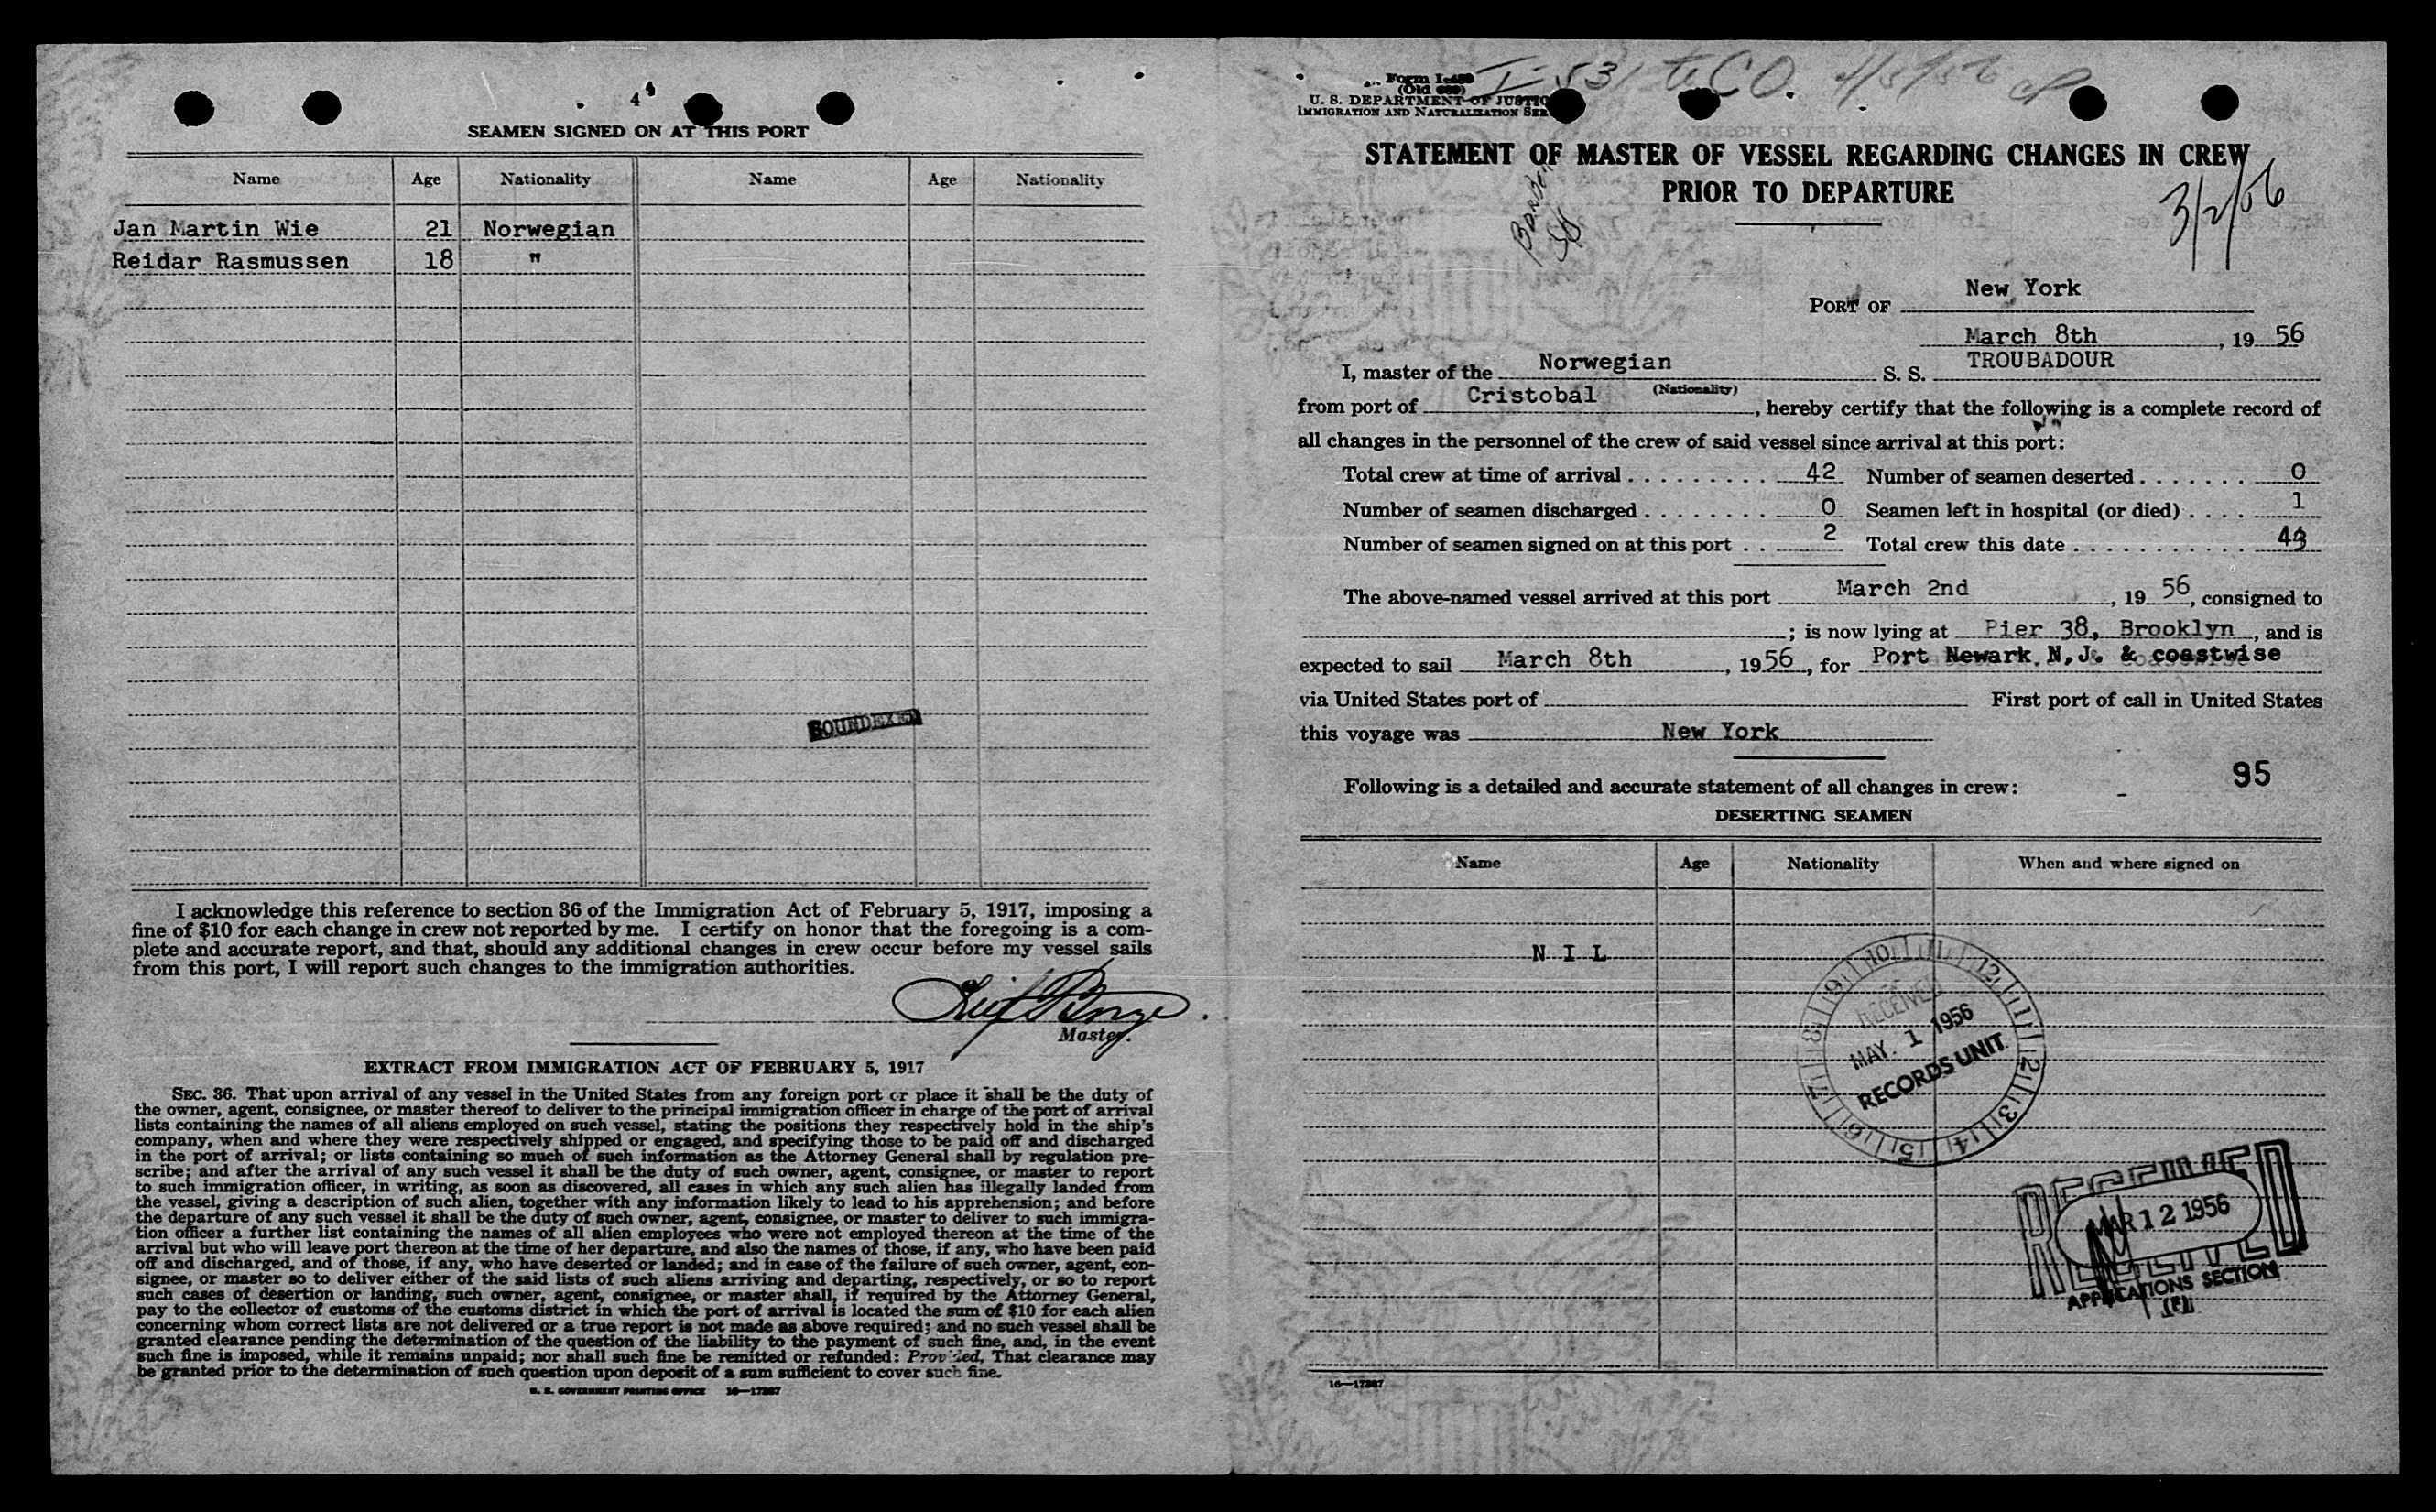 4
SEAMEN SIGNED ON AT THIS PORT
Name Age Nationality Name Age Nationality
Jan Martin Wie 21 Norwegian
Reidar Rasmussen 18 "
SOUNDEXED
I acknowledge this reference to section 36 of the Immigration Act of February 5, 1917, imposing a
fine of $10 for each change in crew not reported by me. I certify on honor that the foregoing is a com-
plete and accurate report, and that, should any additional changes in crew occur before my vessel sails
from this port, I will report such changes to the immigration authorities.
Master.
EXTRACT FROM IMMIGRATION ACT OF FEBRUARY 5, 1917
SEC. 36. That upon arrival of any vessel in the United States from any foreign port or place it shall be the duty of
the owner, agent, consignee, or master thereof to deliver to the principal immigration officer in charge of the port of arrival
lists containing the names of all aliens employed on such vessel, stating the positions they respectively hold in the ship's
company, when and where they were respectively shipped or engaged, and specifying those to be paid off and discharged
in the port of arrival; or lists containing so much of such information as the Attorney General shall by regulation pre-
scribe; and after the arrival of any such vessel it shall be the duty of such owner, agent, consignee, or master to report
to such immigration officer, in writing, as soon as discovered, all cases in which any such alien has illegally landed from
the vessel, giving a description of such alien, together with any information likely to lead to his apprehension; and before
the departure of any such vessel it shall be the duty of such owner, agent, consignee, or master to deliver to such immigra-
tion officer a further list containing the names of all alien employees who were not employed thereon at the time of the
arrival but who will leave port thereon at the time of her departure, and also the names of those, if any, who have been paid
off and discharged, and of those, if any, who have deserted or landed; and in case of the failure of such owner, agent, con-
signee, or master so to deliver either of the said lists of such aliens arriving and departing, respectively, or so to report
such cases of desertion or landing, such owner, agent, consignee, or master shall, if required by the Attorney General,
pay to the collector of customs of the customs district in which the port of arrival is located the sum of $10 for each alien
concerning whom correct lists are not delivered or a true report is not made as above required; and no such vessel shall be
granted clearance pending the determination of the question of the liability to the payment of such fine, and, in the event
such fine is imposed, while it remains unpaid; nor shall such fine be remitted or refunded: Provided, That clearance may
be granted prior to the determination of such question upon deposit of a sum sufficient to cover such fine.
U. S. GOVERNMENT PRINTING OFFICE 16—17287
Form I-489
(Old 689)
I-531 to CO. 4/5/56
U. S. DEPARTMENT OF JUSTIC
IMMIGRATION AND NATURALIZATION SER
STATEMENT OF MASTER OF VESSEL REGARDING CHANGES IN CREW
PRIOR TO DEPARTURE
3/2/56
PORT OF New York
March 8th, 19 56
I, master of the Norwegian S. S. TROUBADOUR
(Nationality)
from port of Cristobal, hereby certify that the following is a complete record of
all changes in the personnel of the crew of said vessel since arrival at this port:
Total crew at time of arrival . . . . . . . . . 42 Number of seamen deserted . . . . . . . 0
Number of seamen discharged . . . . . . . . 0 Seamen left in hospital (or died) . . . . 1
Number of seamen signed on at this port . . 2 Total crew this date . . . . . . . . . . . 43
The above-named vessel arrived at this port March 2nd, 19 56, consigned to
; is now lying at Pier 38, Brooklyn, and is
expected to sail March 8th, 1956, for Port Newark N,J. & coastwise
via United States port of First port of call in United States
this voyage was New York
95
Following is a detailed and accurate statement of all changes in crew:
DESERTING SEAMEN
Name Age Nationality When and where signed on
N I L
10 11 12 1 2 3 4 5 6 7 8 9
RECEIVED
MAY. 1 1956
RECORDS UNIT
RECEIVED
MAR 12 1956
RECEIVED
APPLICATIONS SECTION
(F)
16—17287